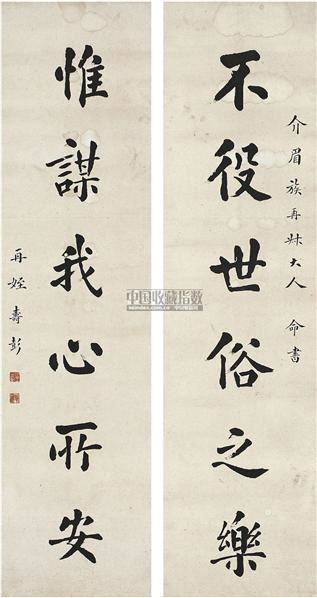 介眉族再叔大人 命書
不役世俗之樂
惟謀我心所安
再姪壽彭
中国收藏指数